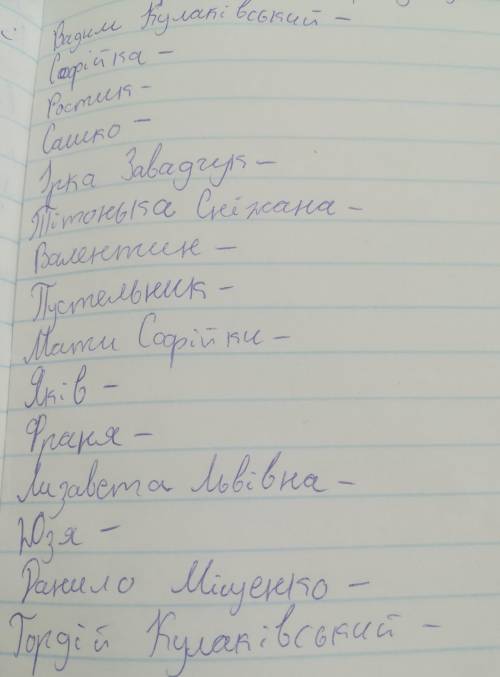 Вадим Кулаківський –
Софійка –
Ростик –
Сашко –
Ірка Завадчук –
Тітонька Сніжана –
Валентин –
Пустельник –
Мати Софійки –
Яків –
Франя –
Лизавета Львівна –
Юзя –
Данило Міщенко –
Гордій Кулаківський –